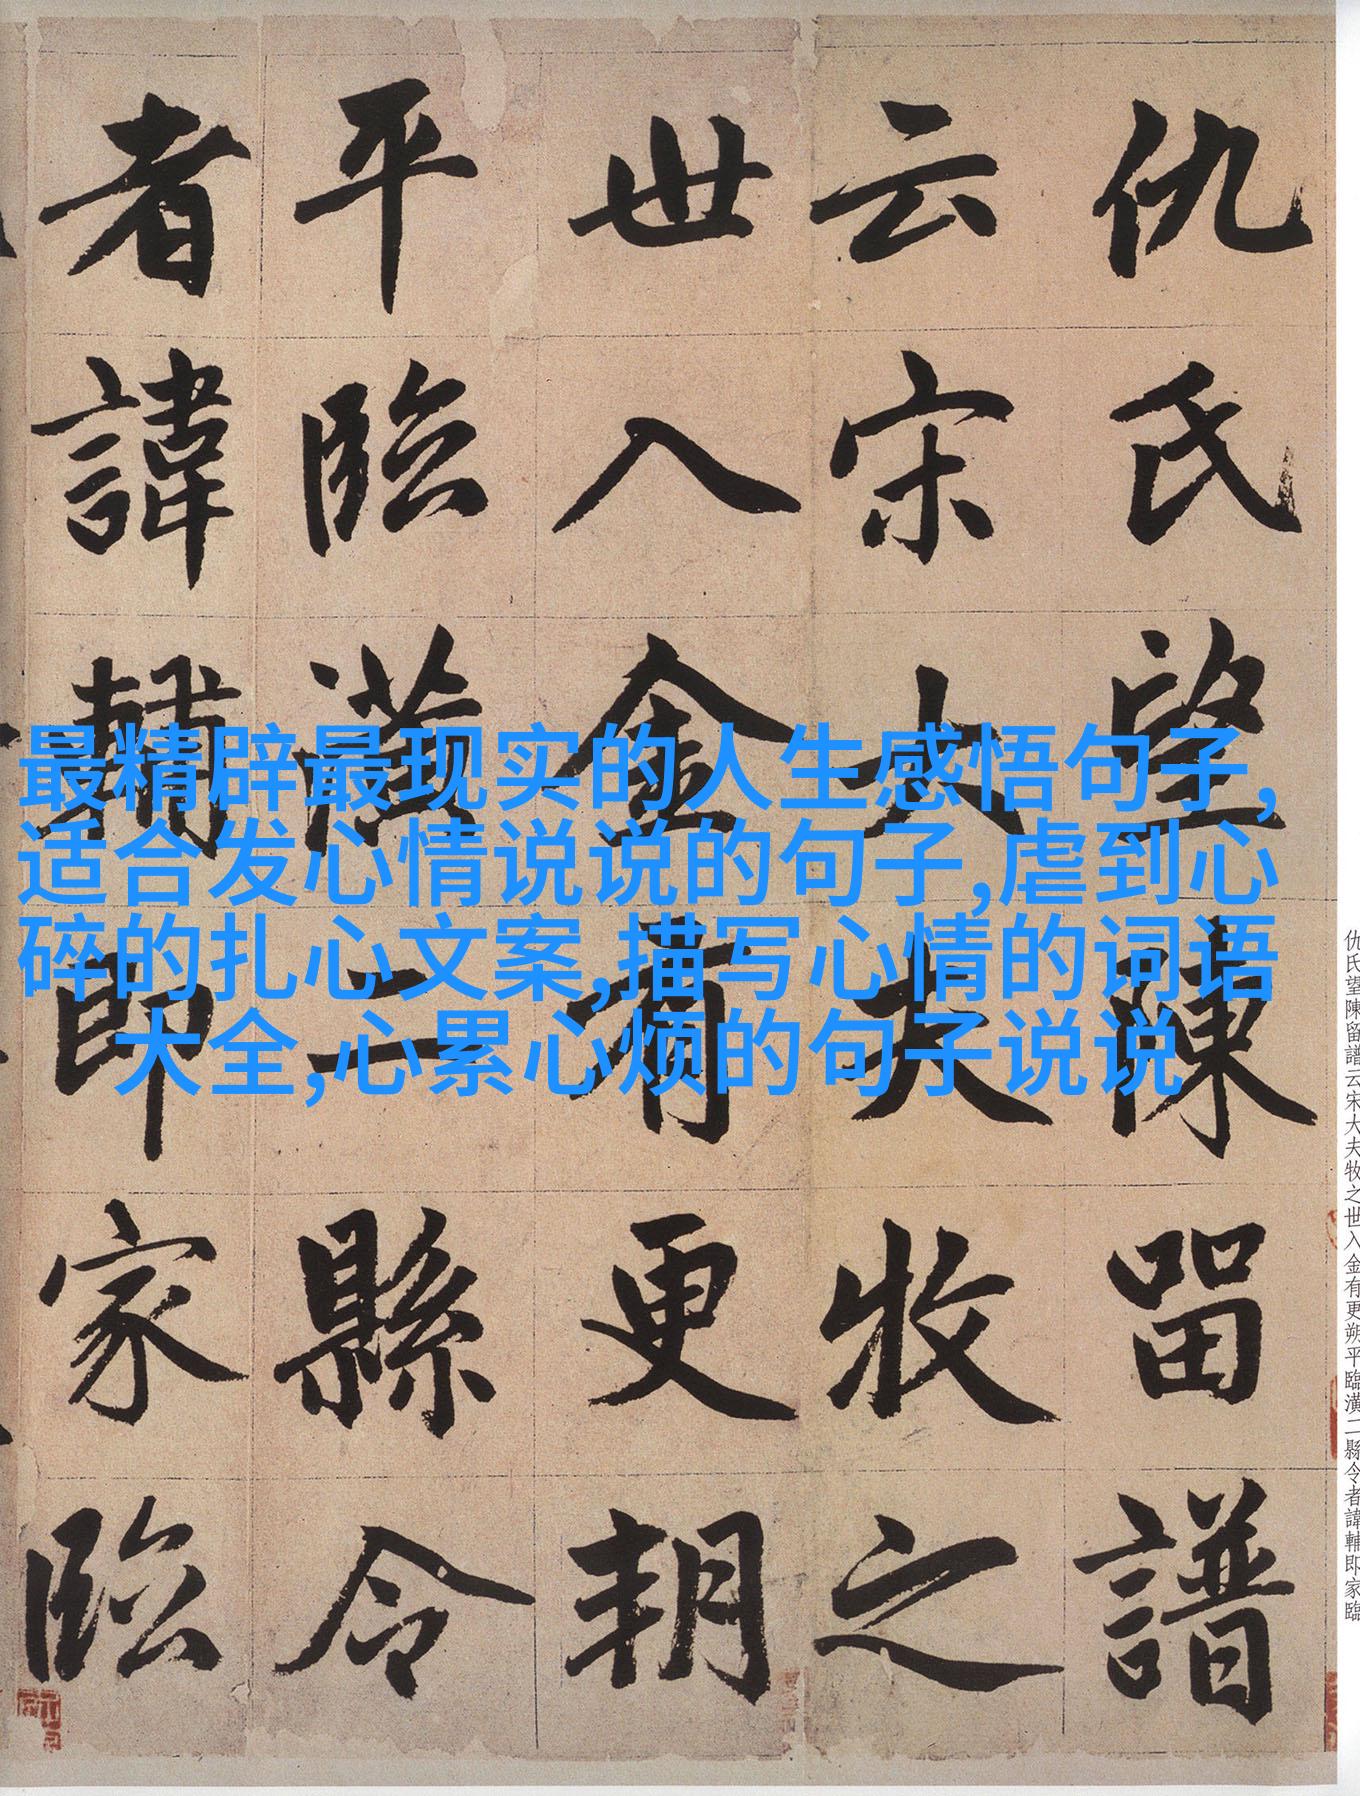 仇氏望陳留譜
云宋大夫牧之
世入金有更朔
平臨潢二縣令
者諱輔即家臨
最精辟最现实的人生感悟句子,
适合发心情说说的句子,虐到心
碎的扎心文案,描写心情的词语
大全,心累心烦的句子说说
仇氏望陳留譜云宋大夫牧之世入金有更朔平臨潢二縣令者諱輔即家臨